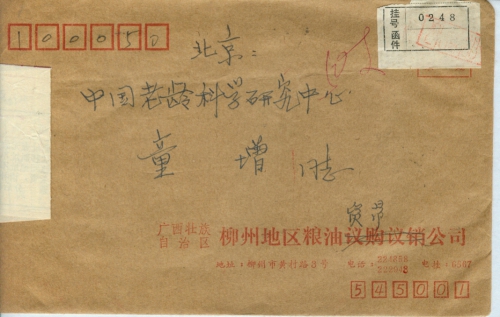 挂号函件 0248
100050
北京：
中国老龄科学研究中心
童增 同志
贸易
广西壮族自治区 柳州地区粮油议购议销公司
地址：柳州市黄村路 号 电话： 电挂：6567
545001